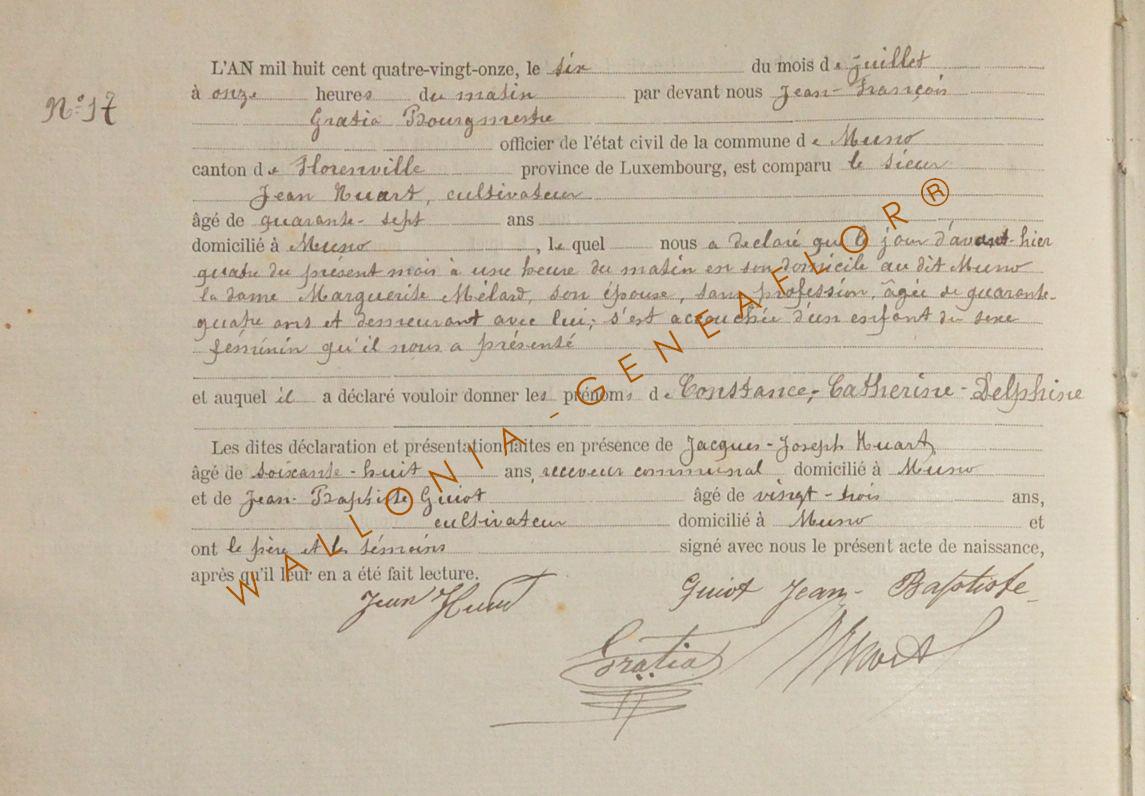 N° 17
L'AN mil huit cent quatre-vingt-onze, le six du mois de juillet
à onze heures du matin par devant nous Jean-François
Gratia Bourgmestre
officier de l'état civil de la commune de Muno
canton de Florenville province de Luxembourg, est comparu le sieur
Jean Huart, cultivateur
âgé de quarante-sept ans
domicilié à Muno, lequel nous a declaré que le jour d'avant-hier
quatre du présent mois à une heure du matin en son domicile au dit Muno
la dame Marguerite Mélard, son épouse, sans profession, âgée de quarante-
quatre ans et demeurant avec lui, s'est accouchée d'un enfant du sexe
féminin qu'il nous a présenté
et auquel il a déclaré vouloir donner les prénoms de Constance-Catherine-Delphine
Les dites déclaration et présentation faites en présence de Jacques-Joseph Huart
âgé de soixante-huit ans, receveur communal domicilié à Muno
et de Jean-Baptiste Guiot âgé de vingt-trois ans,
cultivateur domicilié à Muno et
ont le père et les témoins signé avec nous le présent acte de naissance,
après qu'il leur en a été fait lecture.
Jean Huart Guiot Jean-Baptiste
Gratia Huart
WALLONIA-GENEAFLOR®